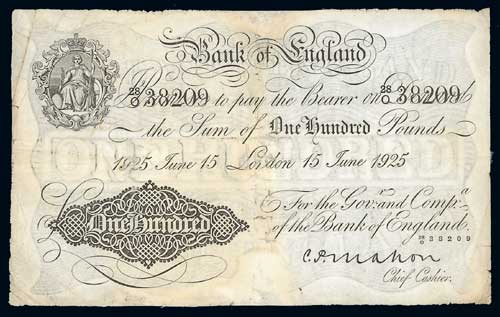 Bank of England
28/O 38209 Promise to pay the Bearer on Demand 28/O 38209
the Sum of One Hundred Pounds
1925 June 15 London 15 June 1925
For the Gov.r and Comp.a
of the Bank of England.
28/O 38209
£ One Hundred
C.P. Mahon
Chief Cashier.